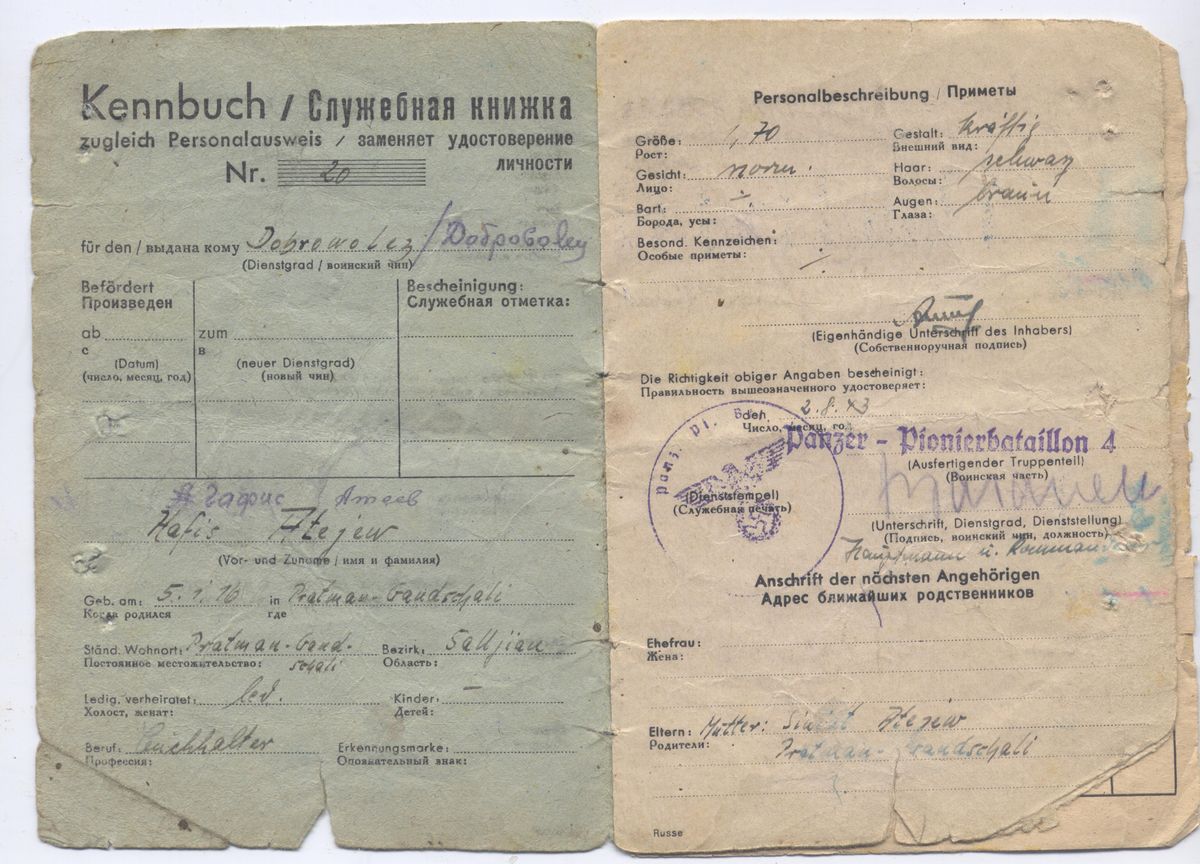 Kennbuch / Служебная книжка
zugleich Personalausweis / заменяет удостоверение
личности
Nr. 20
für den / выдана кому Dobrowolez / Доброволец
(Dienstgrad / воинский чин)
Befördert
Произведен
Bescheinigung:
Служебная отметка:
ab zum
с в
(Datum) (neuer Dienstgrad)
(число, месяц, год) (новый чин)
Гафис Атеев
Hafis Atejew
(Vor- und Zuname / имя и фамилия)
Geb. am: 5.1.16 in Pratman-Gandschali
Когда родился где
Ständ. Wohnort: Pratman-Gand- Bezirk: Salljian
Постоянное местожительство: schali Область:
Ledig, verheiratet: led. Kinder: –
Холост, женат: Детей:
Beruf: Buchhalter Erkennungsmarke:
Профессия: Опознавательный знак:
Personalbeschreibung / Приметы
Größe: 1,70 Gestalt: kräftig
Рост: Внешний вид:
Gesicht: norm. Haar: schwarz
Лицо: Волосы:
Bart: ÷ Augen: braun
Борода, усы: Глаза:
Besond. Kennzeichen:
Особые приметы: ÷
(Eigenhändige Unterschrift des Inhabers)
(Собственноручная подпись)
Die Richtigkeit obiger Angaben bescheinigt:
Правильность вышеозначенного удостоверяет:
den 2.8.43
Число, месяц, год
Panzer - Pionierbataillon 4
(Ausfertigender Truppenteil)
(Воинская часть)
(Dienststempel)
(Служебная печать)
(Unterschrift, Dienstgrad, Dienststellung)
(Подпись, воинский чин, должность)
Hauptmann u. Kommandeur
Anschrift der nächsten Angehörigen
Адрес ближайших родственников
Ehefrau:
Жена:
Eltern: Mutter: Atejew
Родители: Pratman-Gandschali
Russe